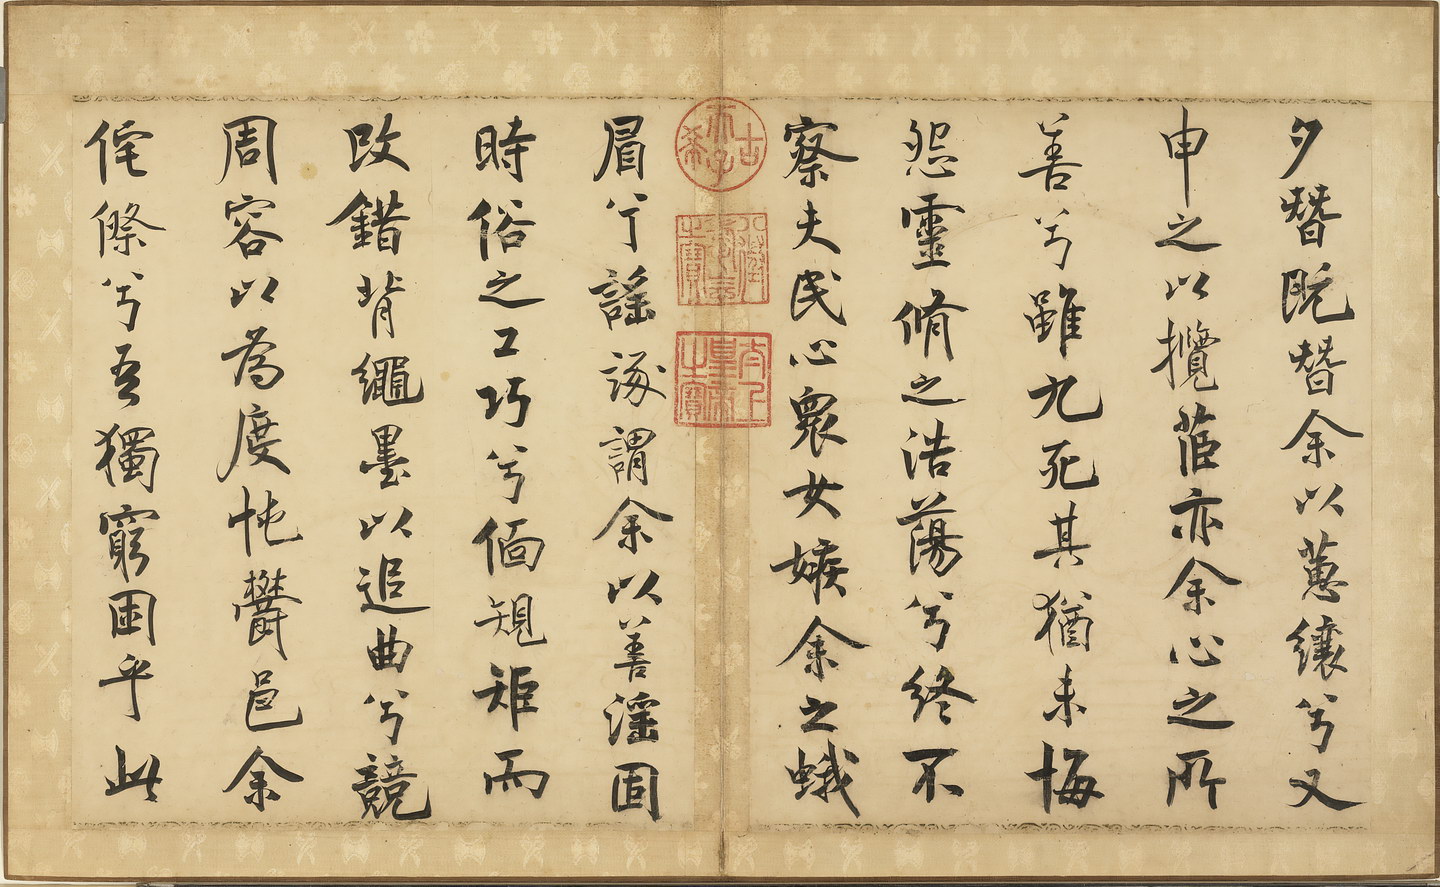 夕替既替余以蕙纕兮又
申之以攬茝亦余心之所
善兮雖九死其猶未悔
怨靈脩之浩蕩兮終不
察夫民心衆女嫉余之蛾
古希天子
八徵耄念之寶
太上皇帝之寶
眉兮謠諑謂余以善淫固
時俗之工巧兮偭規矩而
改錯背繩墨以追曲兮競
周容以為度忳鬱邑余
侘傺兮吾獨窮困乎此